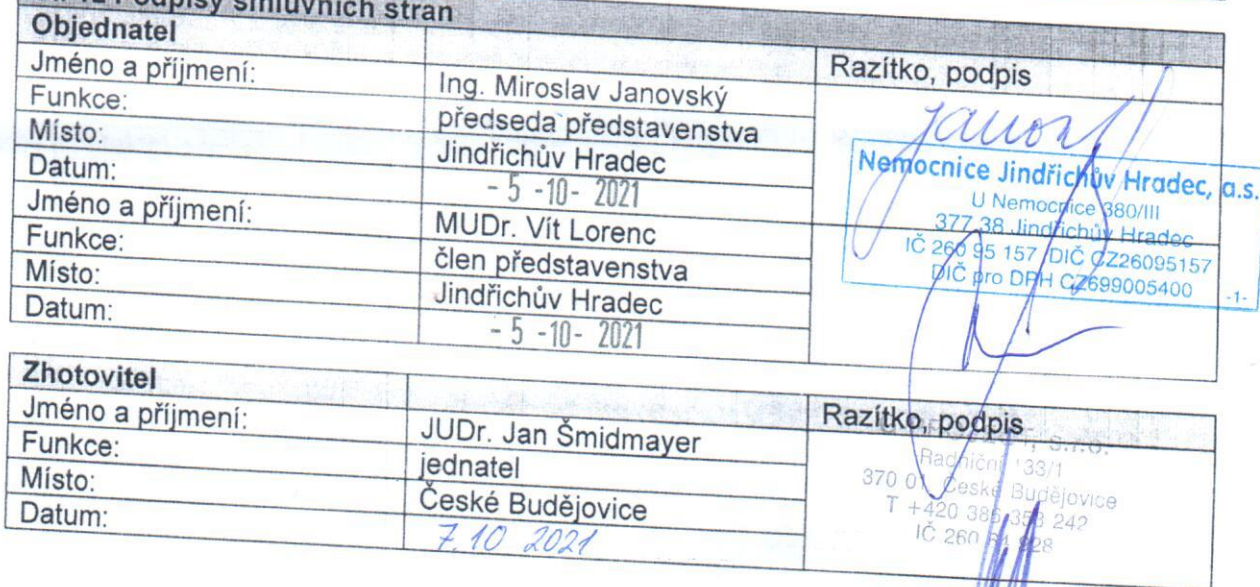 Podpisy smluvních stran
Objednatel
Jméno a příjmení: Ing. Miroslav Janovský
Funkce: předseda představenstva
Místo: Jindřichův Hradec
Datum: - 5 -10- 2021
Jméno a příjmení: MUDr. Vít Lorenc
Funkce: člen představenstva
Místo: Jindřichův Hradec
Datum: - 5 -10- 2021
Razítko, podpis
Nemocnice Jindřichův Hradec, a.s.
U Nemocnice 380/III
377 38 Jindřichův Hradec
IČ 260 95 157, DIČ CZ26095157
DIČ pro DPH CZ699005400
-1-
Zhotovitel
Jméno a příjmení: JUDr. Jan Šmidmayer
Funkce: jednatel
Místo: České Budějovice
Datum: 7.10 2021
Razítko, podpis
s.r.o.
Radniční 133/1
370 01 České Budějovice
T +420 386 353 242
IČ 260